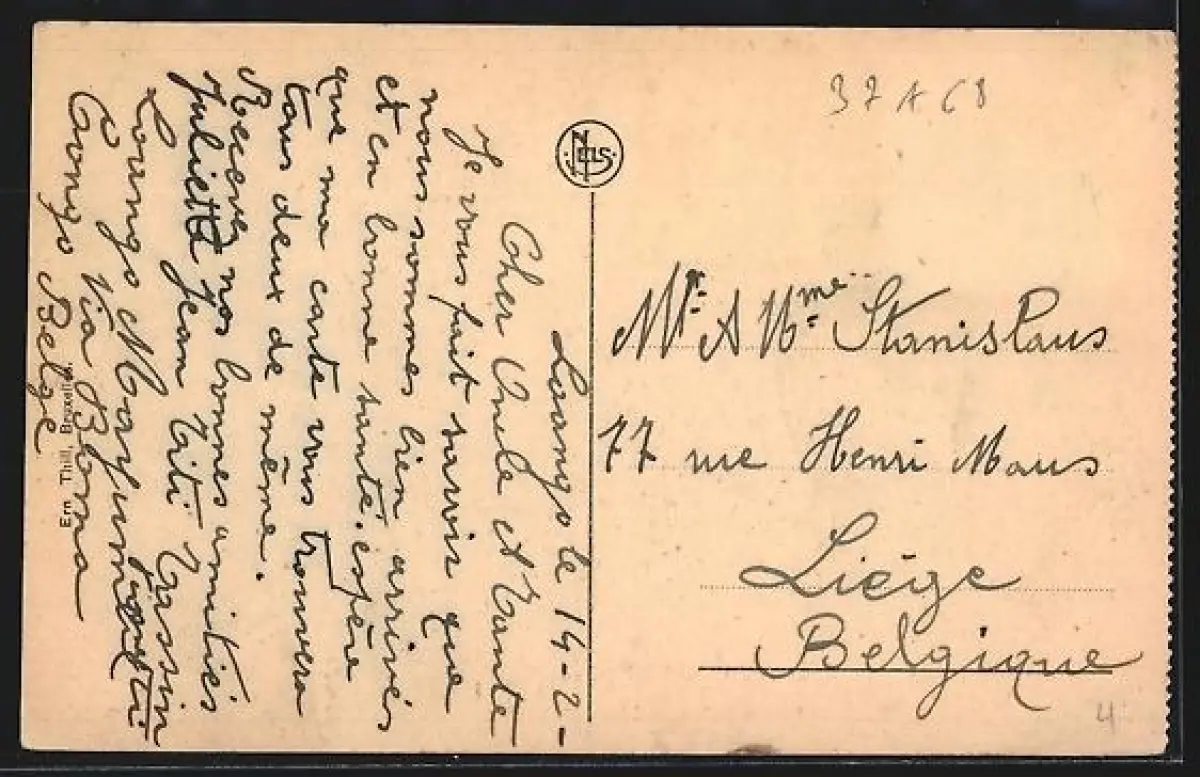 Loango le 14-2-
Cher Oncle et Tante
Je vous fait savoir que
nous sommes bien arrivés
et en bonne santé. espère
que ma carte vous trouvera
tous deux de même.
Recevez nos bonnes amitiés
Juliette Jean Titi Tassin
Loango Mayumbe
via Boma
Congo Belge
Ern. Thill, Bruxelles
NELS
37 A 68
Mr. A Mme. Stanislaus
77 rue Henri Maus
Liége
Belgique
4